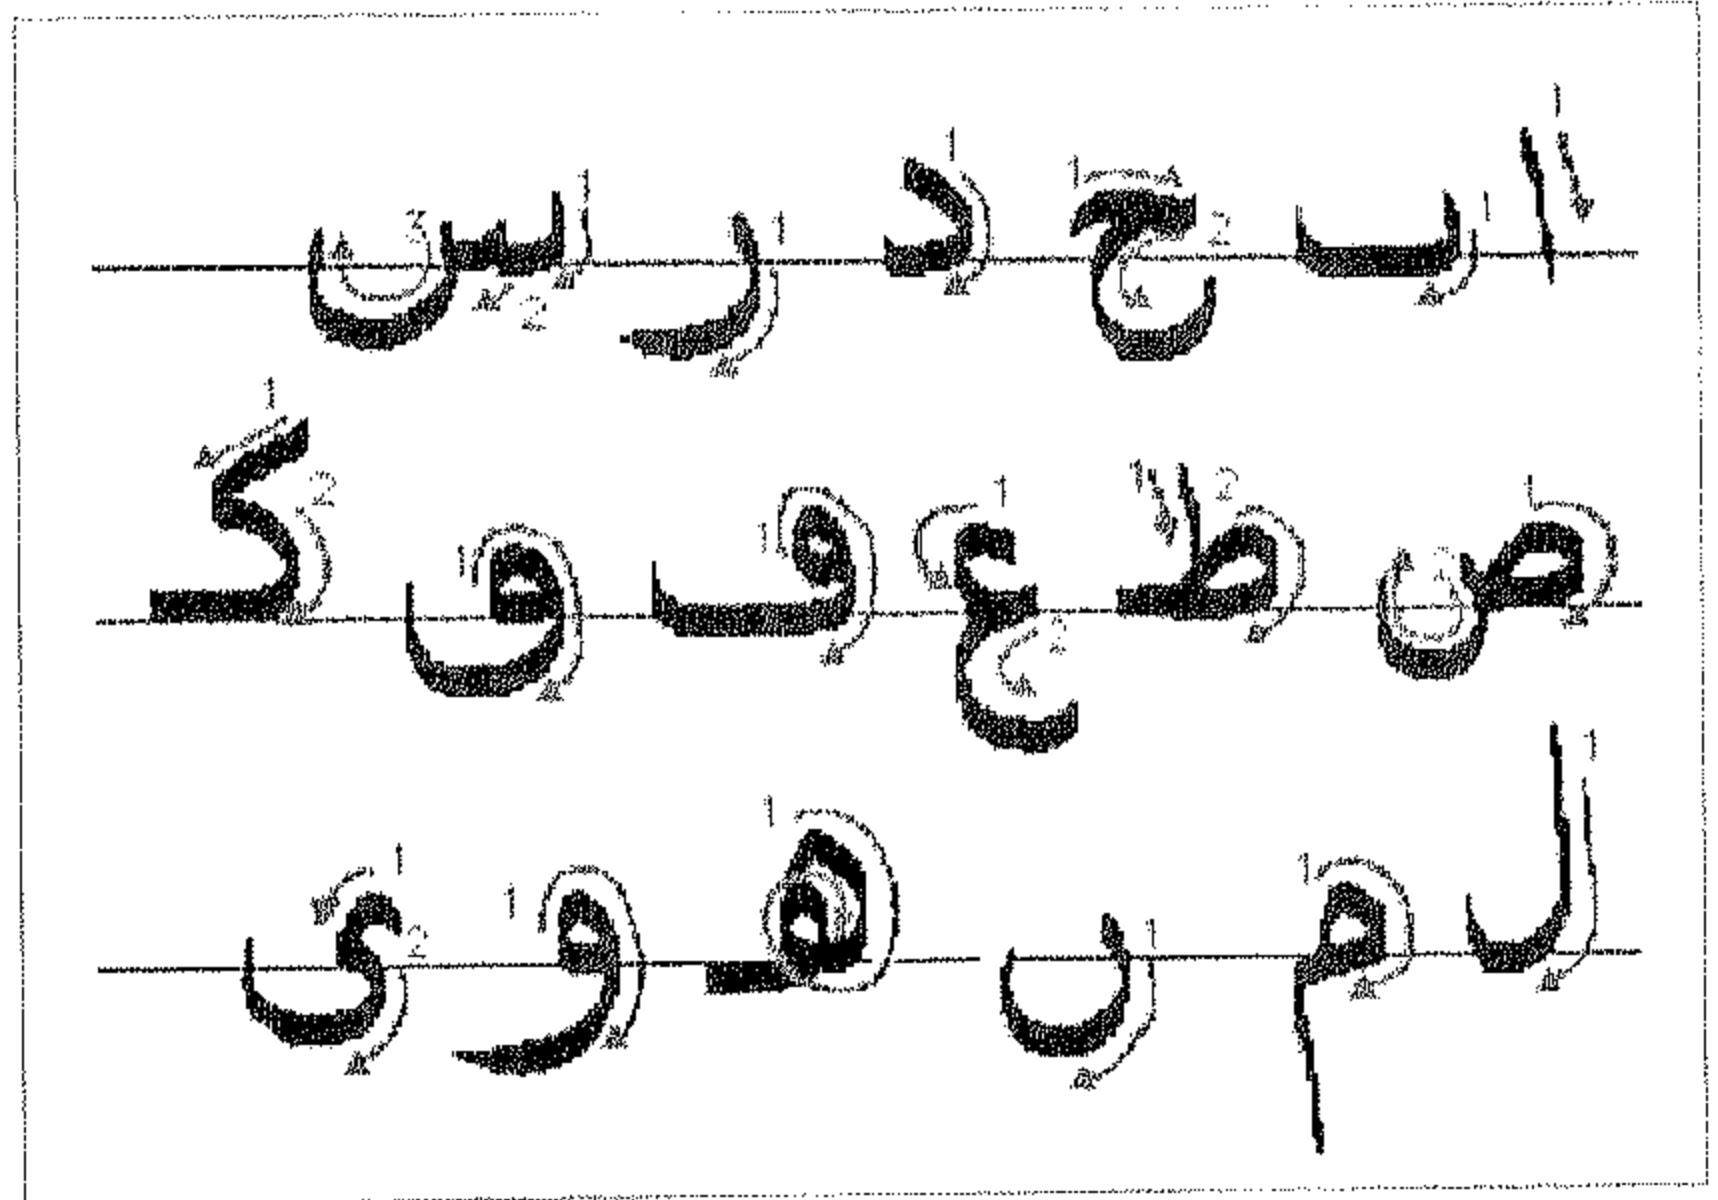 ا ب ح د ر س
ص ط ع ف ق ک
ل م ن ه و ی